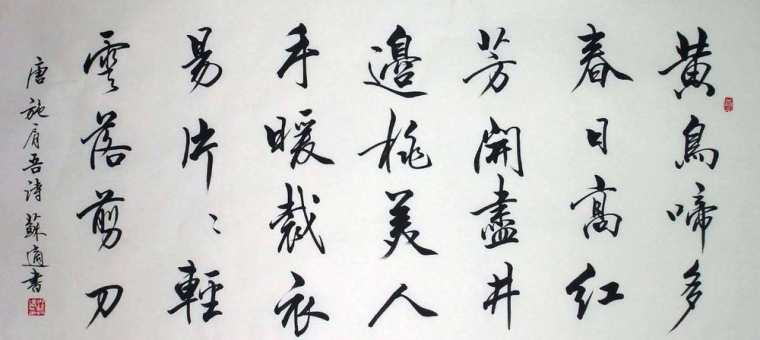 黄鳥啼多
春日高紅
芳開盡井
邊桃美人
手暖裁衣
易片〻輕
雲落剪刀
唐施肩吾詩蘇適書